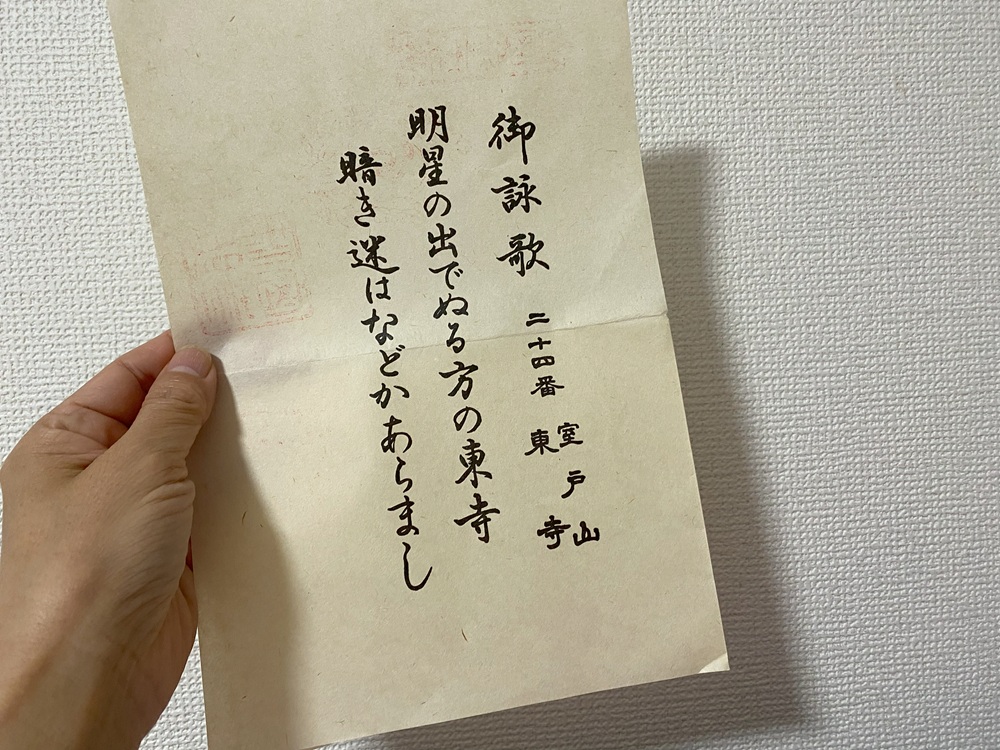 御詠歌 二十四番 室戸山
東寺
明星の出でぬる方の東寺
暗き迷はなどかあらまし